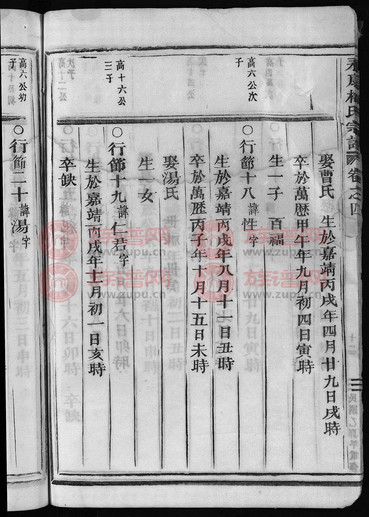 娶曹氏 生於嘉靖丙戌年四月廿九日戌時
卒於萬歷甲午年九月初四日寅時
生一子 百福
高六公次子
〇行節十八 諱性 字
生於嘉靖丙戌年八月十一日丑時
卒於萬歷丙子年十月十五日未時
娶湯氏
生一女
高十六公三子
〇行節十九 諱仁君 字
生於嘉靖丙戌年十二月初一日亥時
卒缺
高六公幼子
〇行節二十 諱湯 字
族谱网